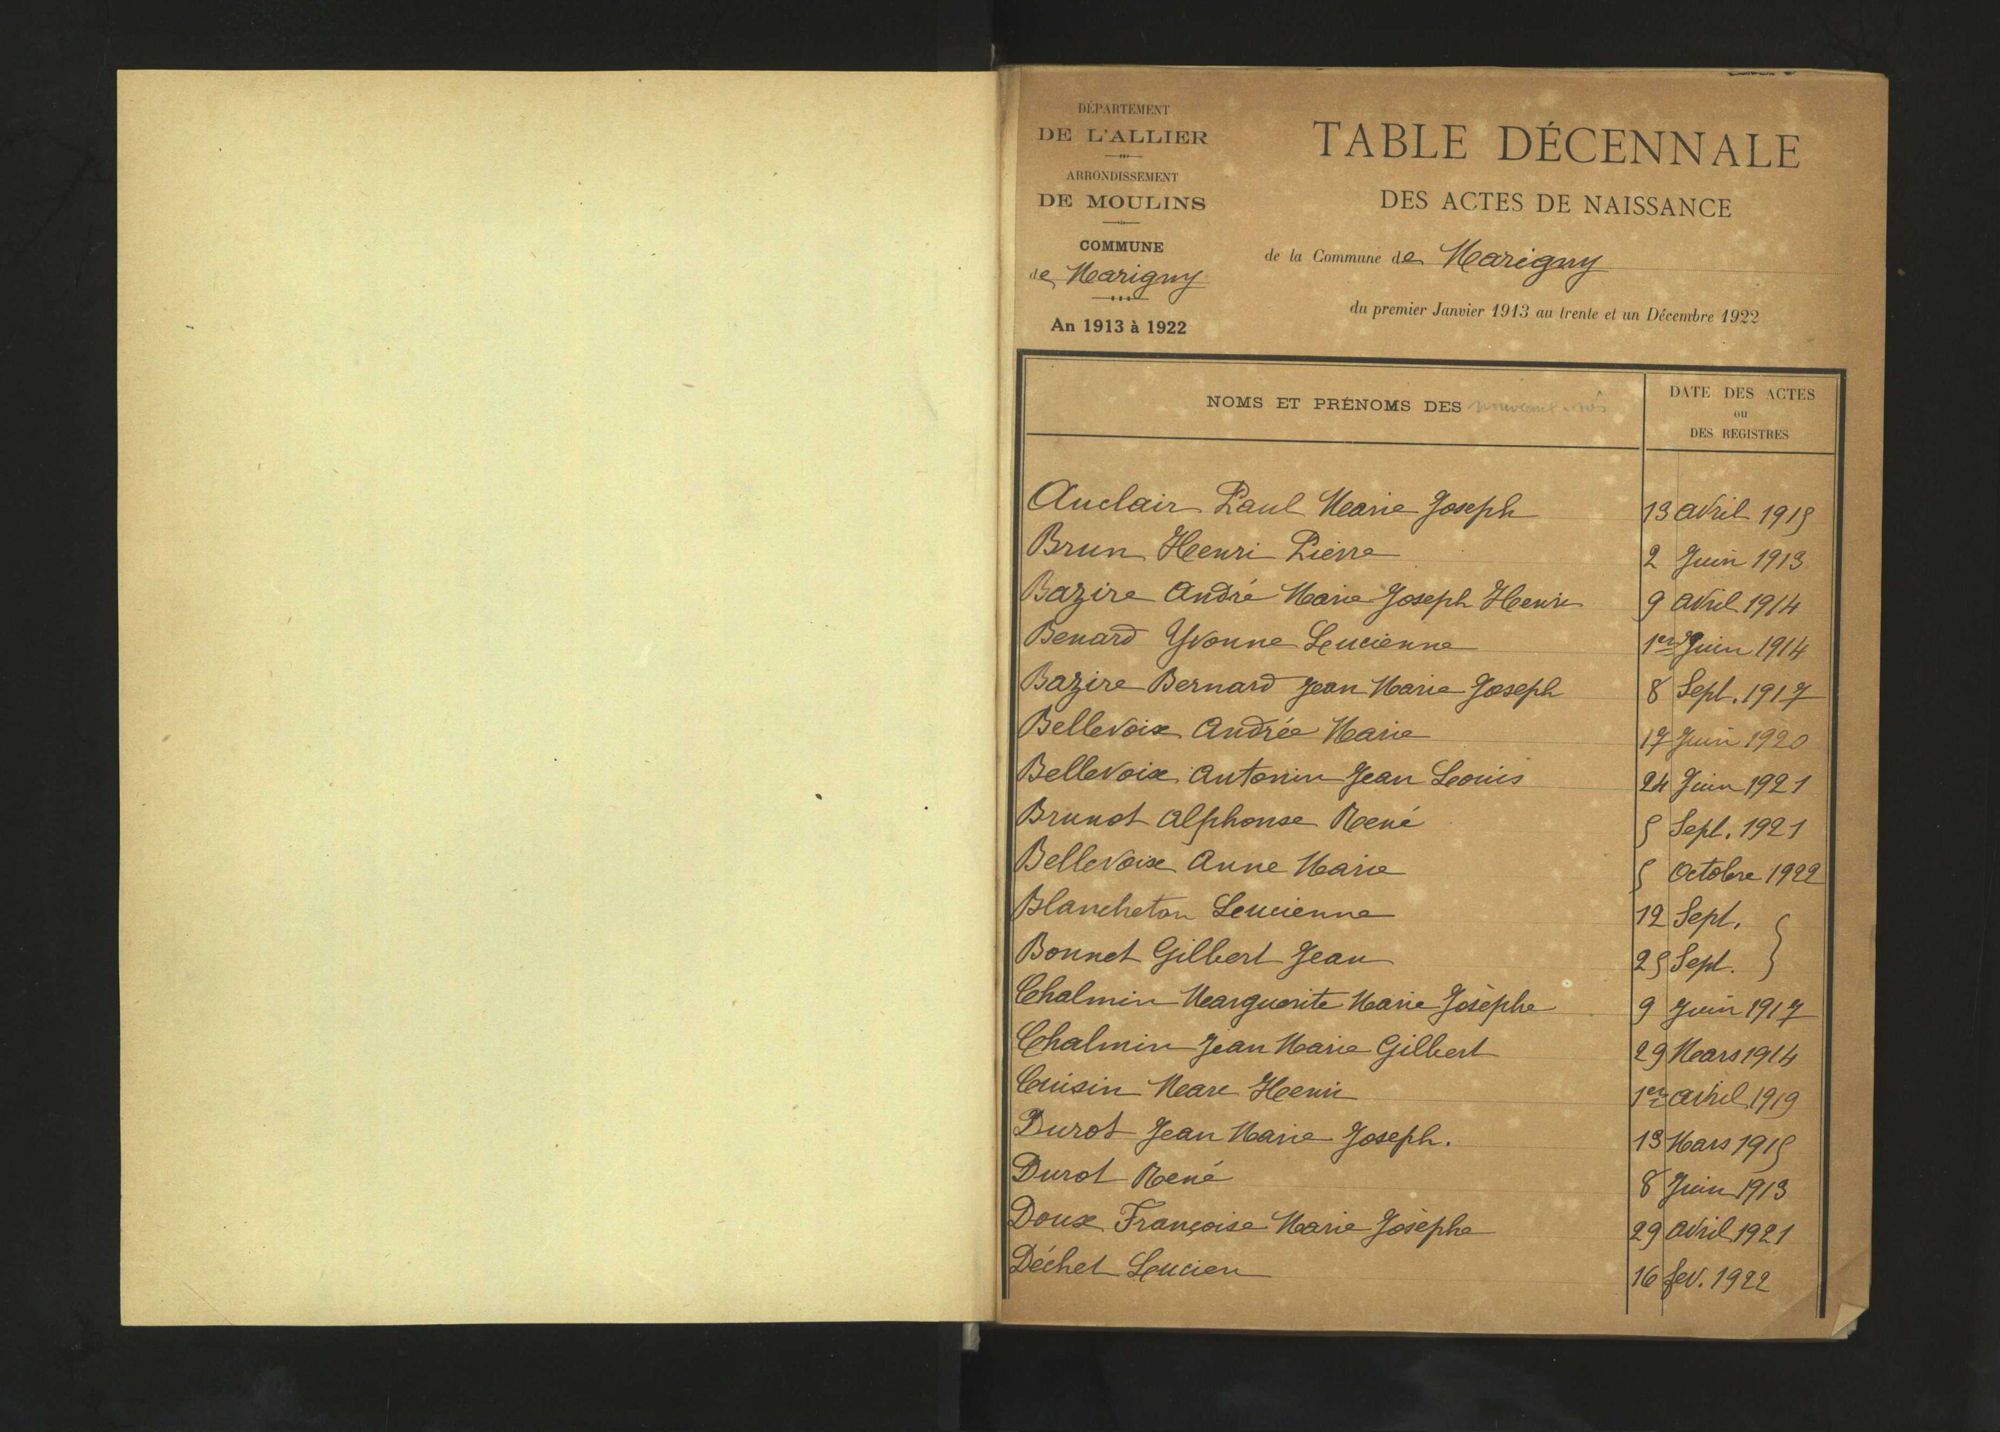 DÉPARTEMENT
DE L'ALLIER
ARRONDISSEMENT
DE MOULINS
COMMUNE
de Marigny
An 1913 à 1922
TABLE DÉCENNALE
DES ACTES DE NAISSANCE
de la Commune de Marigny
du premier Janvier 1913 au trente et un Décembre 1922
NOMS ET PRÉNOMS DES nouveaux nés
DATE DES ACTES
ou
DES REGISTRES
Auclair Paul Marie Joseph 13 avril 1915
Brun Henri Pierre 2 Juin 1913
Bazire André Marie Joseph Henri 9 avril 1914
Benard Yvonne Lucienne 1er Juin 1914
Bazire Bernard Jean Marie Joseph 8 Sept. 1917
Bellevoix Andrée Marie 17 Juin 1920
Bellevoix Antonin Jean Louis 24 Juin 1921
Brunot Alphonse René 5 Sept. 1921
Bellevoix Anne Marie 5 Octobre 1922
Blancheton Lucienne 12 Sept. }
Bonnet Gilbert Jean 25 Sept. }
Chalmin Marguerite Marie Josèphe 9 Juin 1917
Chalmin Jean Marie Gilbert 29 Mars 1914
Cuisin Marc Henri 1er avril 1919
Durot Jean Marie Joseph. 13 Mars 1915
Durot René 8 Juin 1913
Doux Françoise Marie Josèphe 29 avril 1921
Déchet Lucien 16 fev. 1922